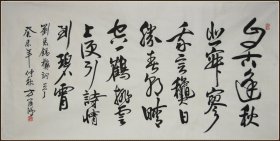 自古逢秋
悲寂寥
我言秋日
勝春朝晴
空一鶴排雲
上便引詩情
到碧霄
劉禹錫秋詞
癸未年仲秋